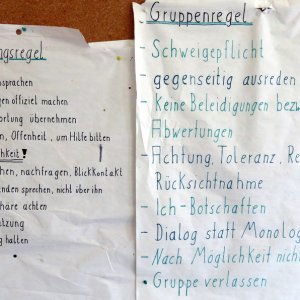 ngsregel
nsprachen
gen offiziel machen
ortung übernehmen
n, Offenheit, um Hilfe bitten
chkeit!
chen, nachfragen, Blickkontakt
enden sprechen, nicht über ihn
häre achten
etzung
g halten
Gruppenregel
- Schweigepflicht
- gegenseitig ausreden
- Keine Beleidigungen bezw
Abwertungen
- Achtung, Toleranz, Re
Rücksichtnahme
- Ich-Botschaften
- Dialog statt Monolog
- Nach Möglichkeit nicht
Gruppe verlassen